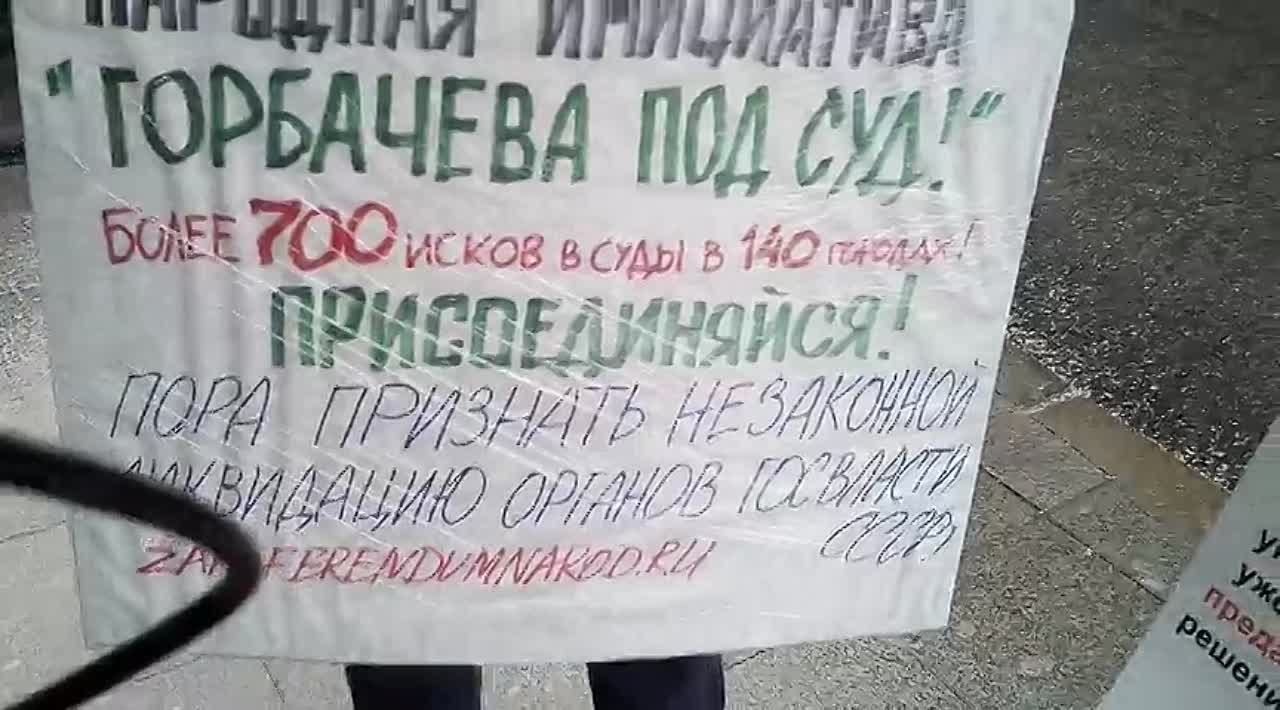 НАРОДНАЯ ИНИЦИАТИВА
"ГОРБАЧЕВА ПОД СУД!"
БОЛЕЕ 700 ИСКОВ В СУДЫ В 140 ГОРОДАХ!
ПРИСОЕДИНЯЙСЯ!
ПОРА ПРИЗНАТЬ НЕЗАКОННОЙ
ЛИКВИДАЦИЮ ОРГАНОВ ГОСВЛАСТИ
СССР
преда
решени